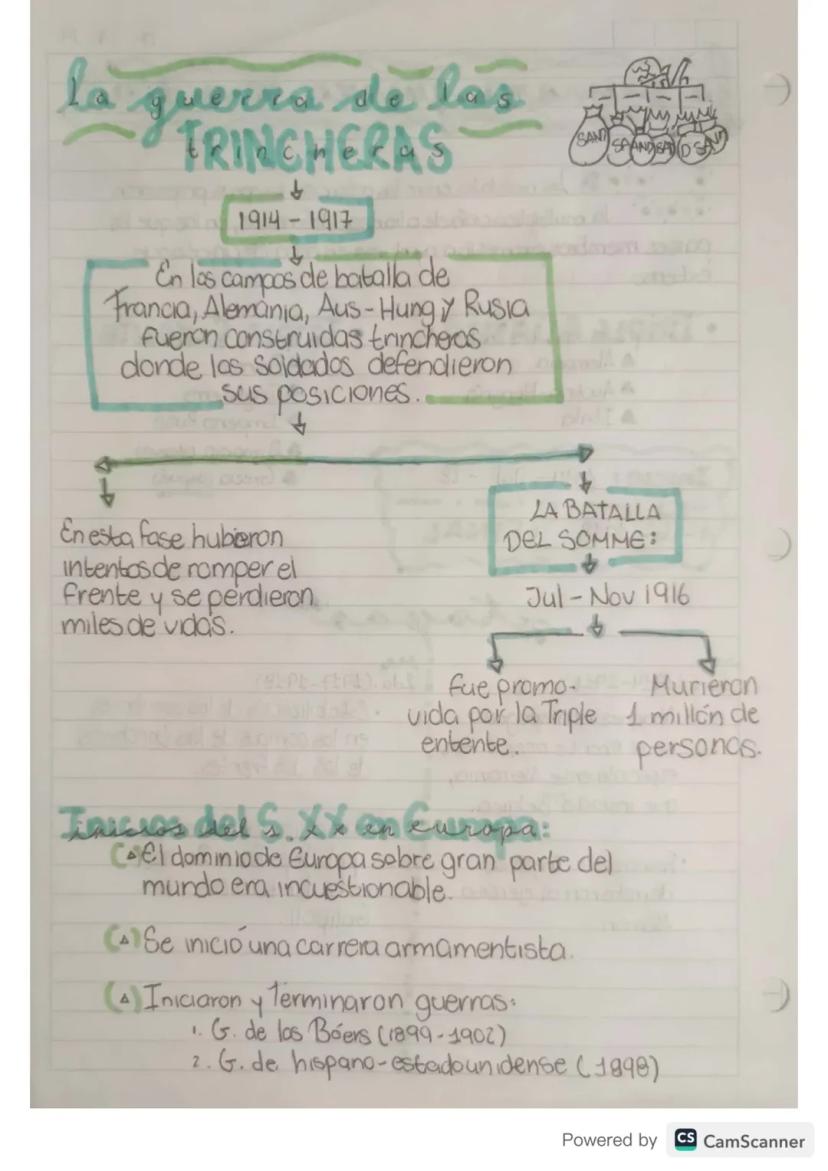 La guerra de las
TRINCHERAS
trincheras
SAND SAND SAND SAN
1914 - 1917
En los campos de batalla de
Francia, Alemania, Aus-Hung y Rusia
fueron construidas trincheras
donde los soldados defendieron
sus posiciones.
En esta fase hubieron
intentos de romper el
frente y se perdieron
miles de vidas.
LA BATALLA
DEL SOMME:
Jul - Nov 1916
fue promo-
vida por la Triple
entente.
Murieron
1 millón de
personas.
Inicios del S. XX en Europa:
El dominio de Europa sobre gran parte del
mundo era incuestionable.
Se inició una carrera armamentista.
Iniciaron y terminaron guerras:
1. G. de los Bóers (1899-1902)
2. G. de hispano-estadounidense (1898)
Powered by CS CamScanner